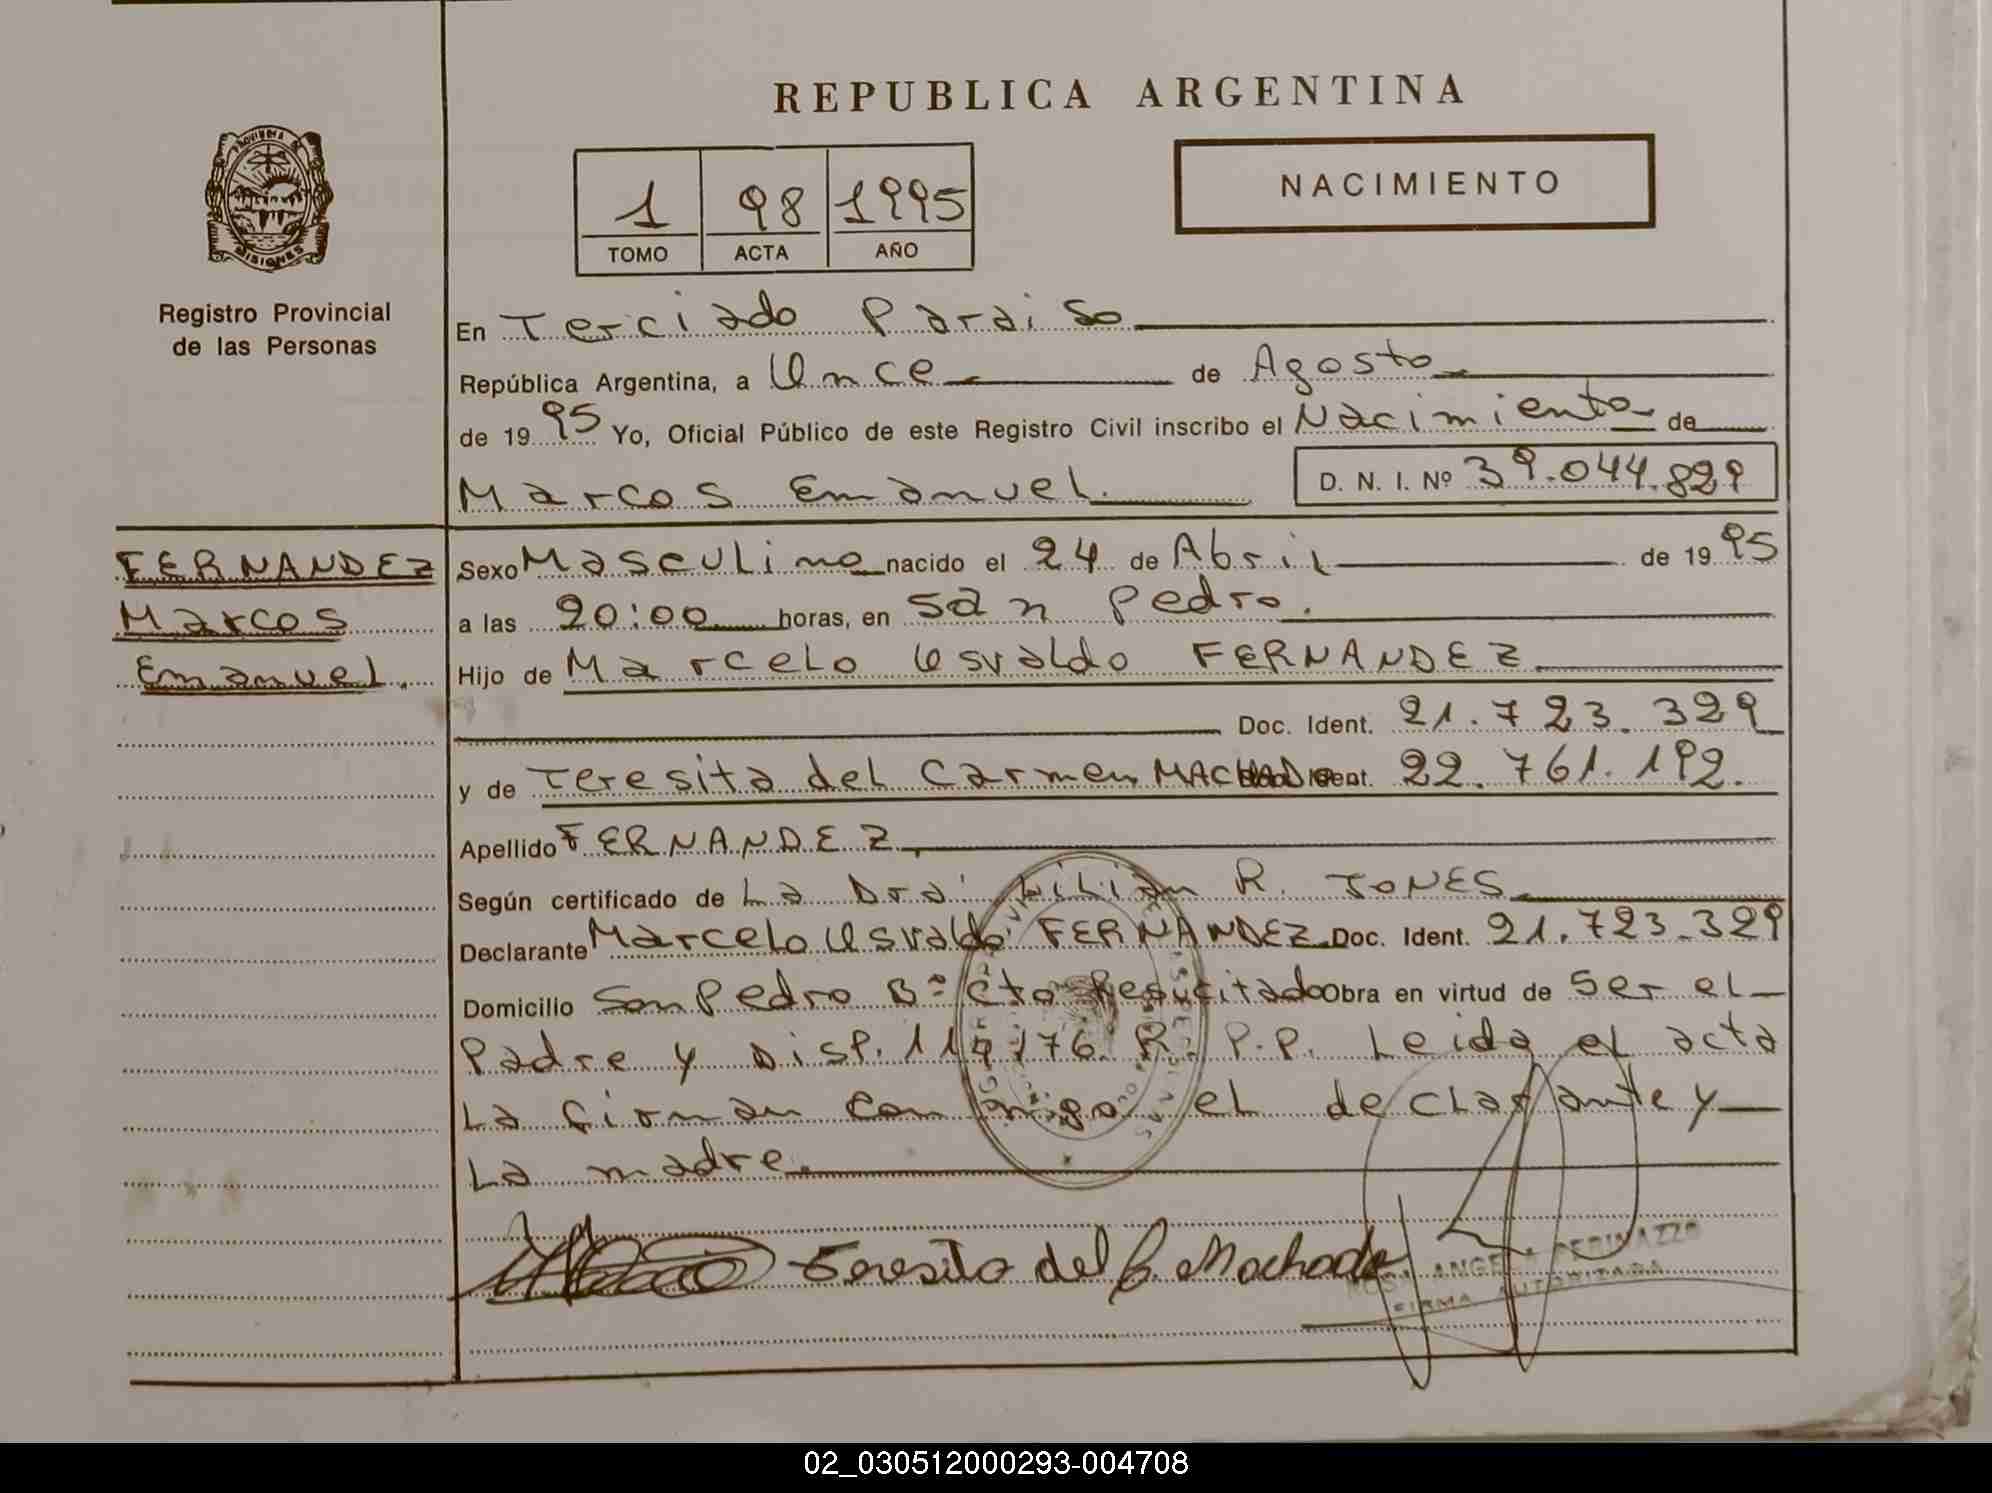 REPUBLICA ARGENTINA
PROVINCIA DE
MISIONES
Registro Provincial
de las Personas
1 98 1995
TOMO ACTA AÑO
NACIMIENTO
En Terciado Paraiso
República Argentina, a Once de Agosto
de 1995 Yo, Oficial Público de este Registro Civil inscribo el Nacimiento de
Marcos Emanuel. D. N. I. Nº 39.044.829
FERNANDEZ
Marcos
Emanuel.
Sexo Masculino nacido el 24 de Abril de 1995
a las 20:00 horas, en San Pedro.
Hijo de Marcelo Osvaldo FERNANDEZ
Doc. Ident. 21.723.329
y de Teresita del Carmen MACHADO Ident. 22.761.192.
Apellido FERNANDEZ
Según certificado de La Dra. Lilian R. JONES
Declarante Marcelo Osvaldo FERNANDEZ Doc. Ident. 21.723.329
Domicilio San Pedro Bº Cto Resucitado Obra en virtud de Ser el
Padre y Disp. 176 R. P.P. Leida el acta
La firman conmigo el declarante y
La madre.
Teresita del C. Machado
ANGELA PERINAZZO
FIRMA AUTORIZADA
02_030512000293-004708